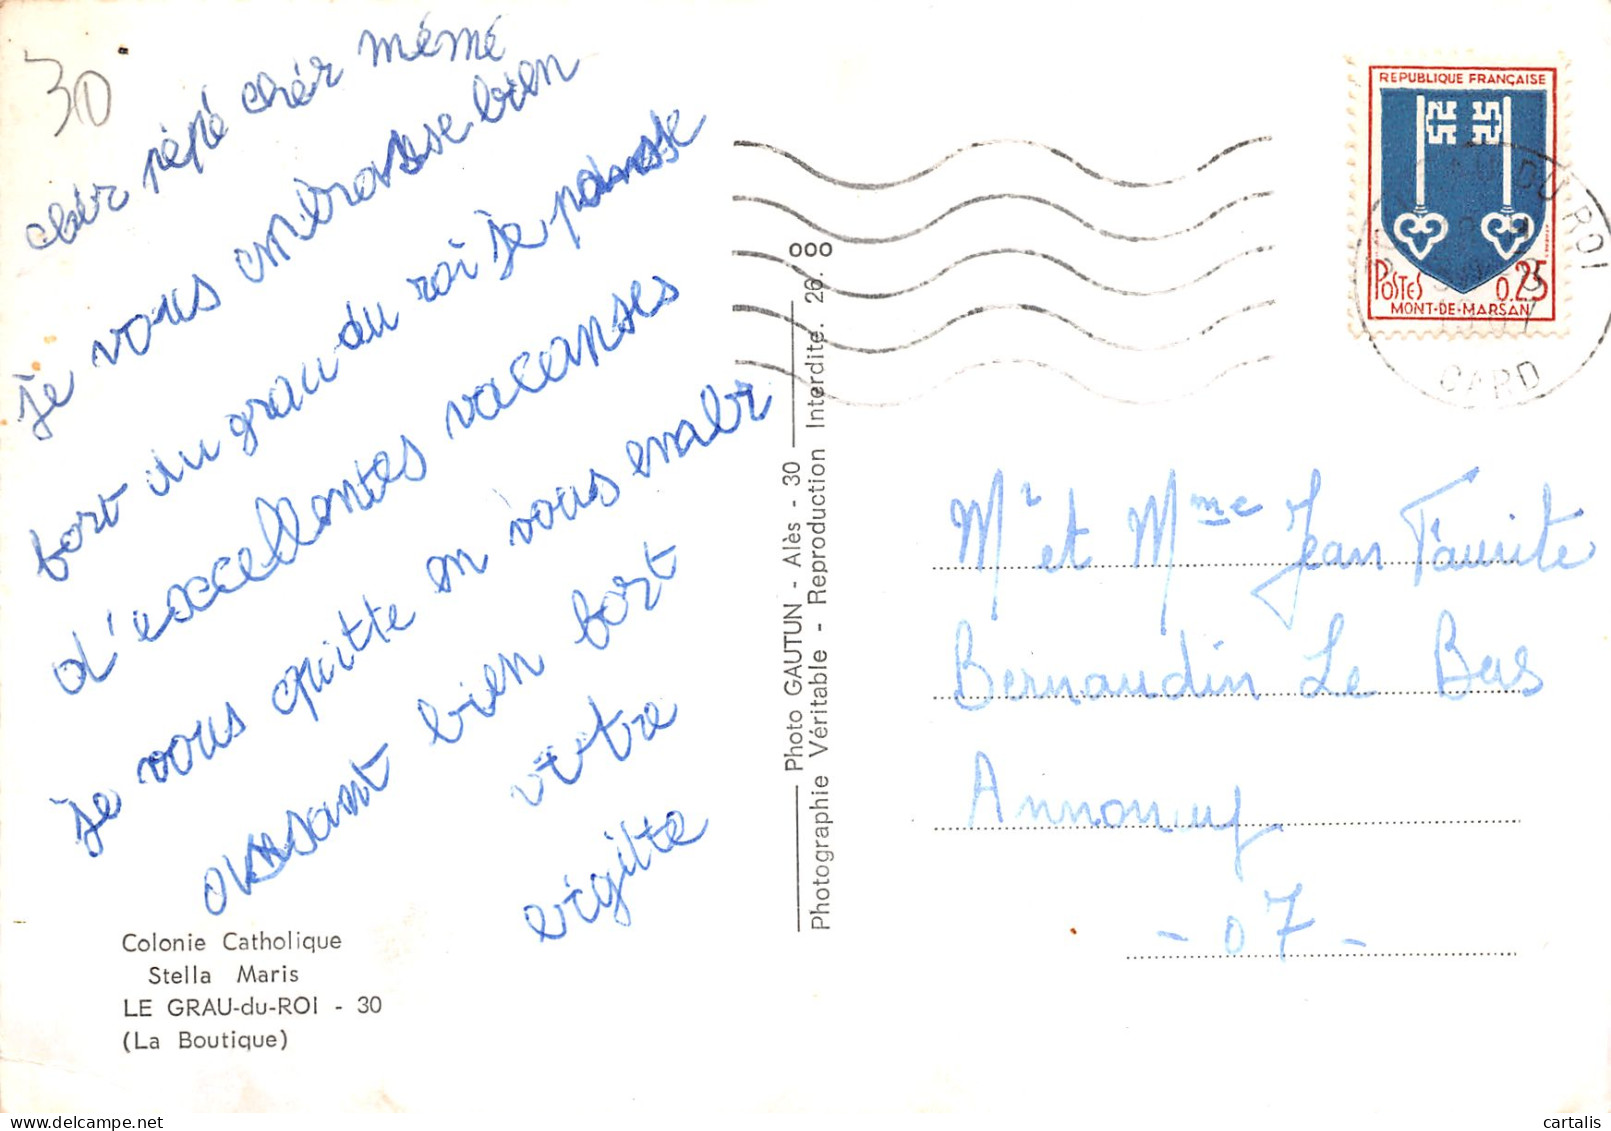 30
chèr pépé chèr mémé
je vous embrasse bien
fort du grau du roi je pansse
d'excellentes vacanses
je vous quitte en vous enabr
assant bien fort
votre
brigitte
Colonie Catholique
Stella Maris
LE GRAU-du-ROI - 30
(La Boutique)
Photo GAUTUN - Alès - 30
Photographie Véritable - Reproduction Interdite. 26. 000
REPUBLIQUE FRANÇAISE
POSTES 0.25
MONT-DE-MARSAN
GRAU DU ROI
GARD
Mr et Mme Jean Faurite
Bernaudin Le Bas
Annonay
- 07 -
delcampe.net
cartalis